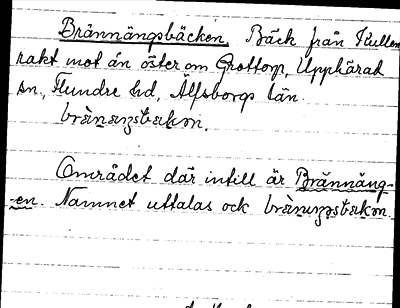 Brännängsbäcken, Bäck från Kullen
rakt mot ån öster om Grottorp, Upphärad
sn, Flundre hd, Älfsborgs län.
Området där intill är Brännäng-
-en. Namnet uttalas ock